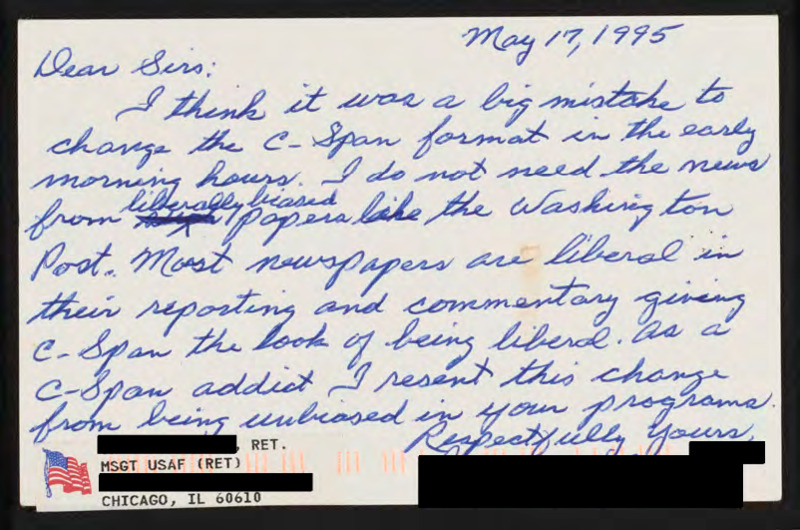 May 17, 1995
Dear Sirs:
I think it was a big mistake to
change the C-Span format in the early
morning hours. I do not need the news
from liberally biased papers like the Washington
Post. Most newspapers are liberal in
their reporting and commentary giving
C-Span the look of being liberal. As a
C-Span addict I resent this change
from being unbiased in your programs.
Respectfully Yours,
, RET.
MSGT USAF (RET)
CHICAGO, IL 60610